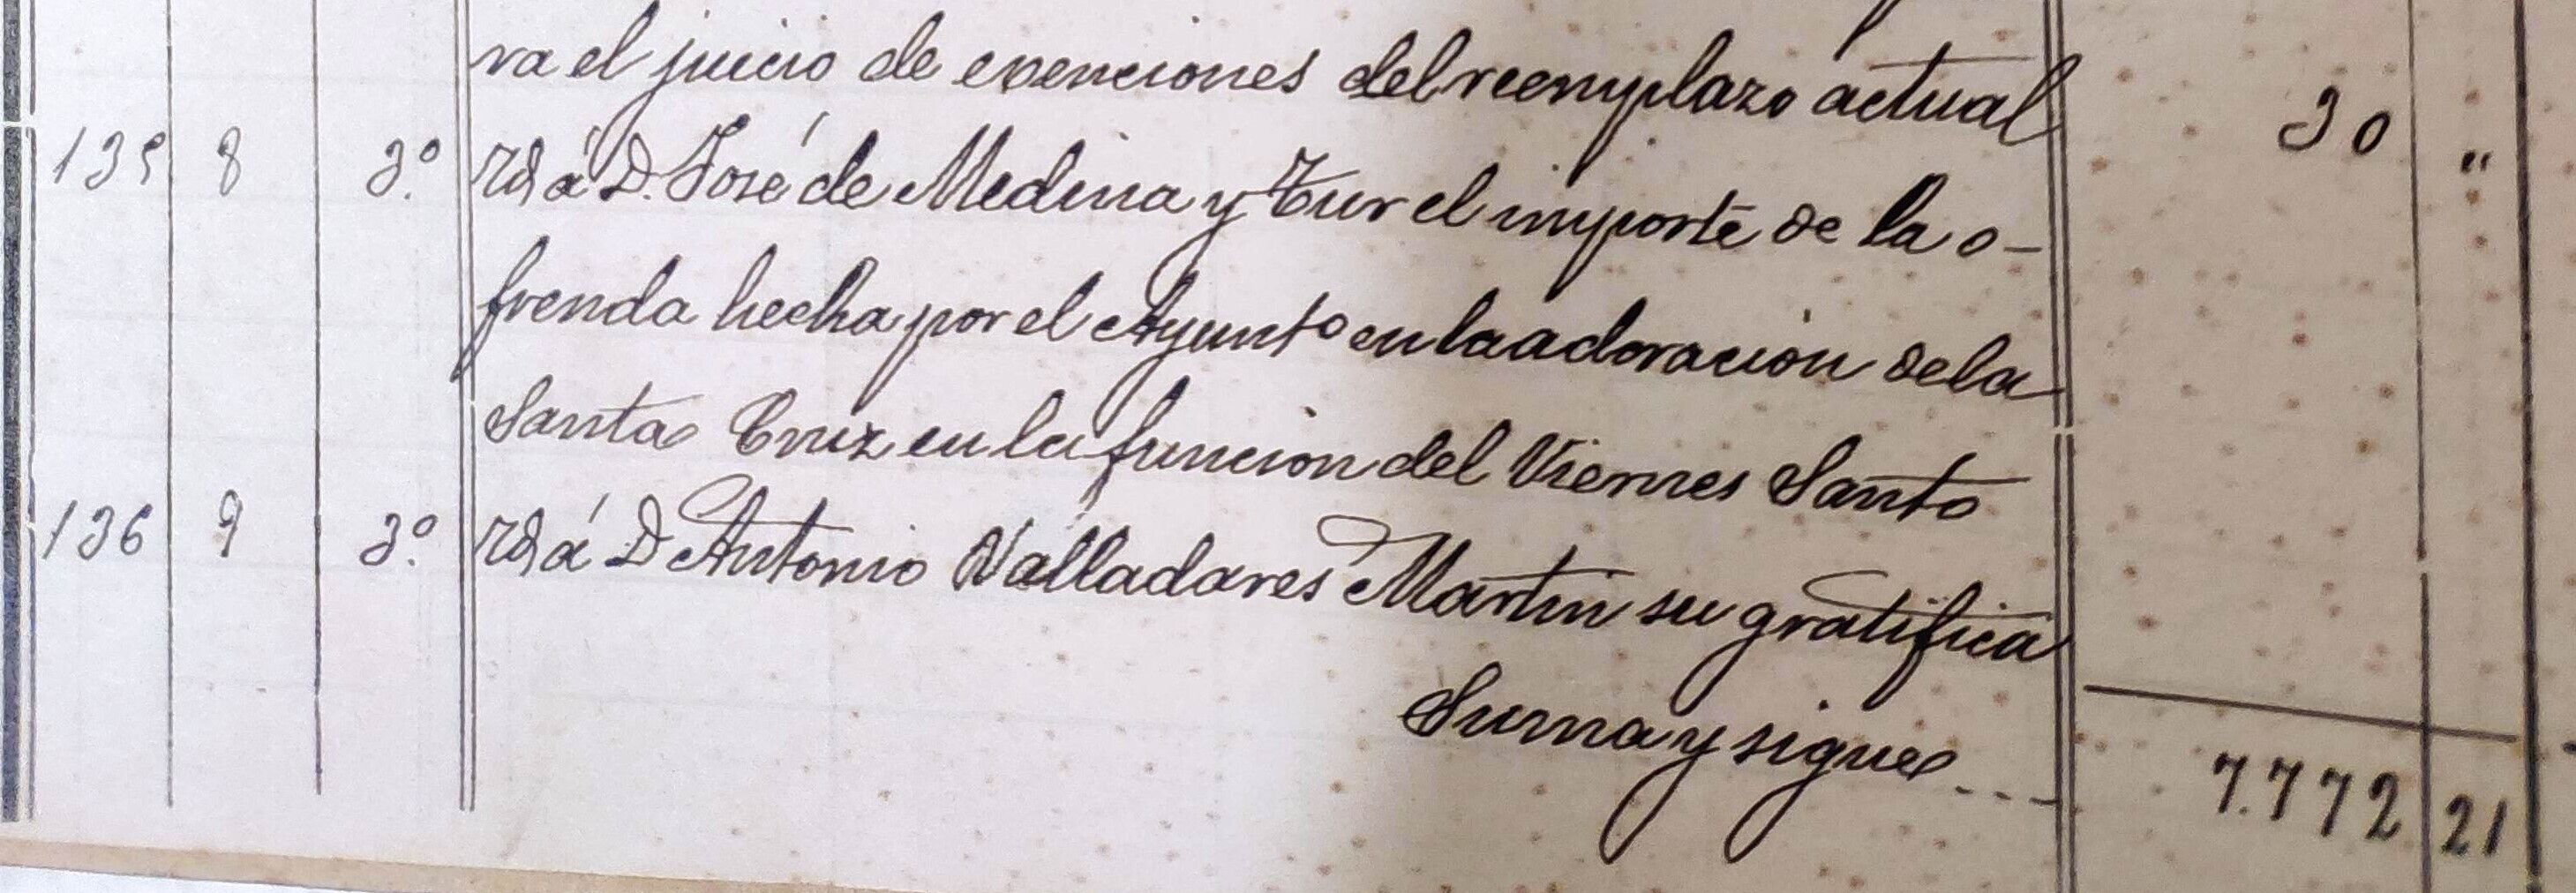 ra el juicio de exenciones del reemplazo actual 30 "
135 8 3.º Id á D. José de Medina y Tur el importe de la o-
frenda hecha por el Ayunto en la adoracion de la
Santa Cruz en la funcion del Viernes Santo
136 9 3.º Id á D Antonio Valladares Martin su gratifica
Suma y sigue ---- 7.772 21